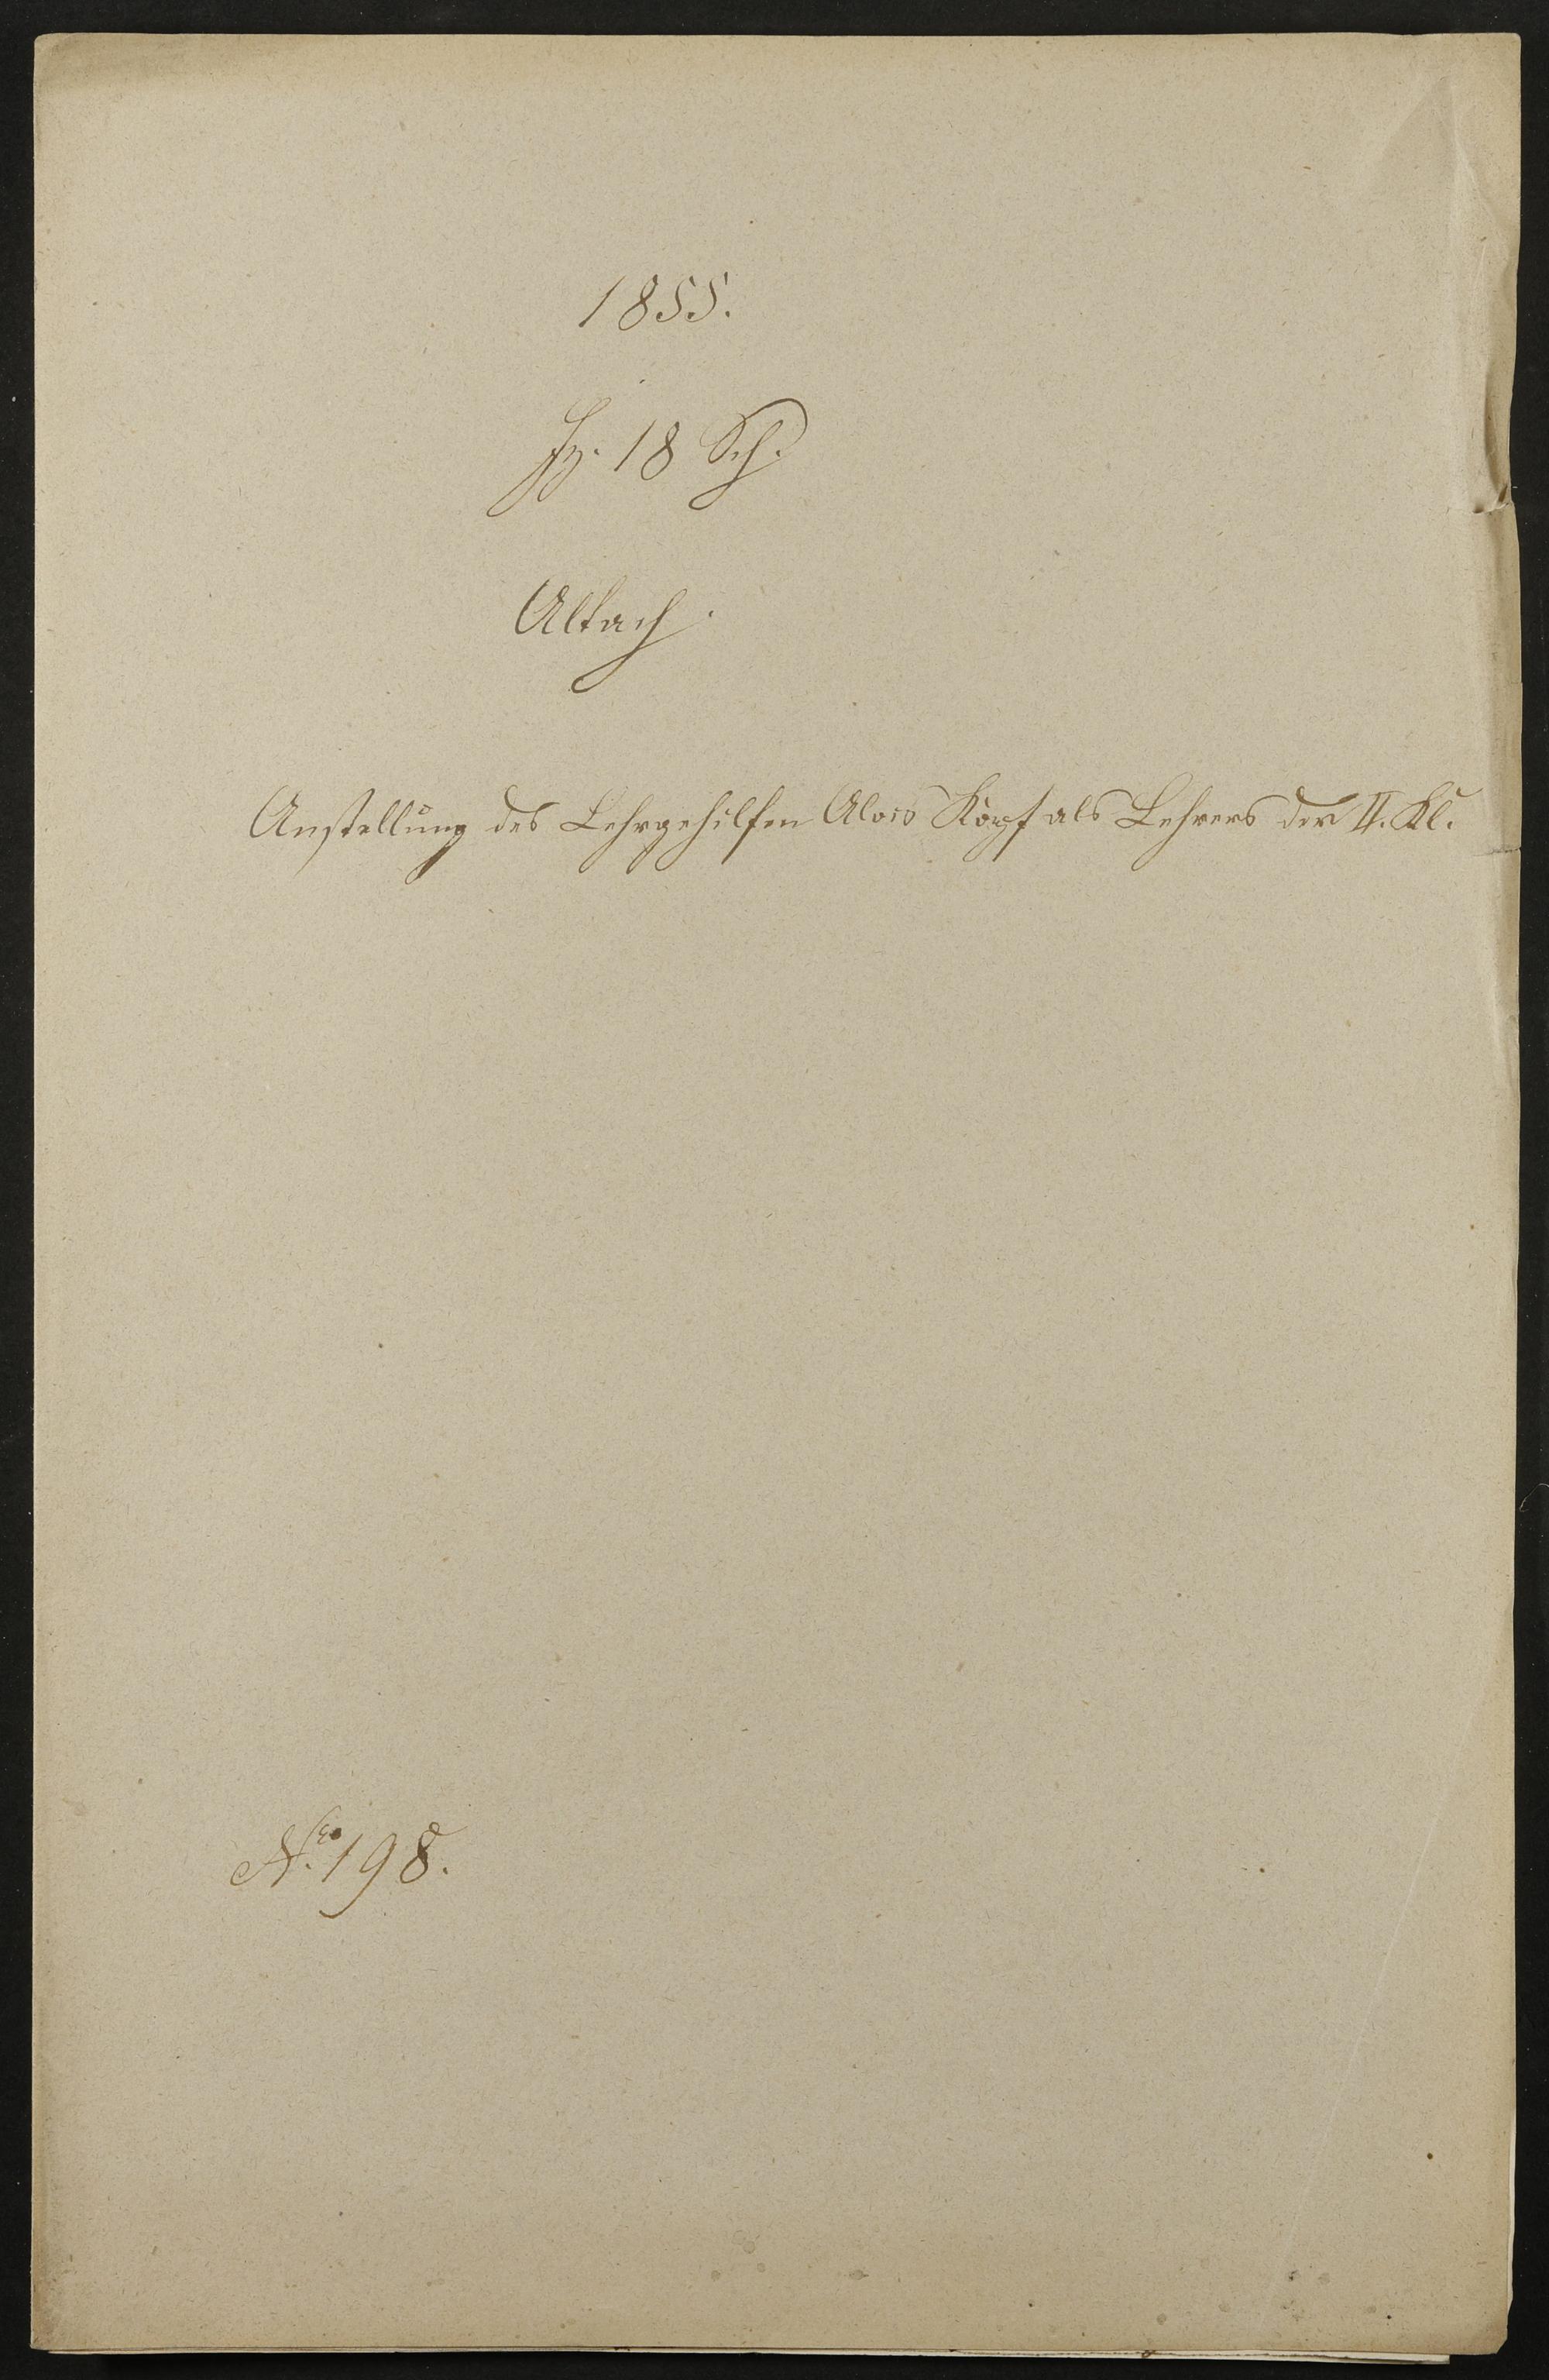 1855.
Fz. 18 Sch.
Altach.
Anstellung des Lehrgehilfen Alois Kopf als Lehrers der II. Kl.
No. 198.